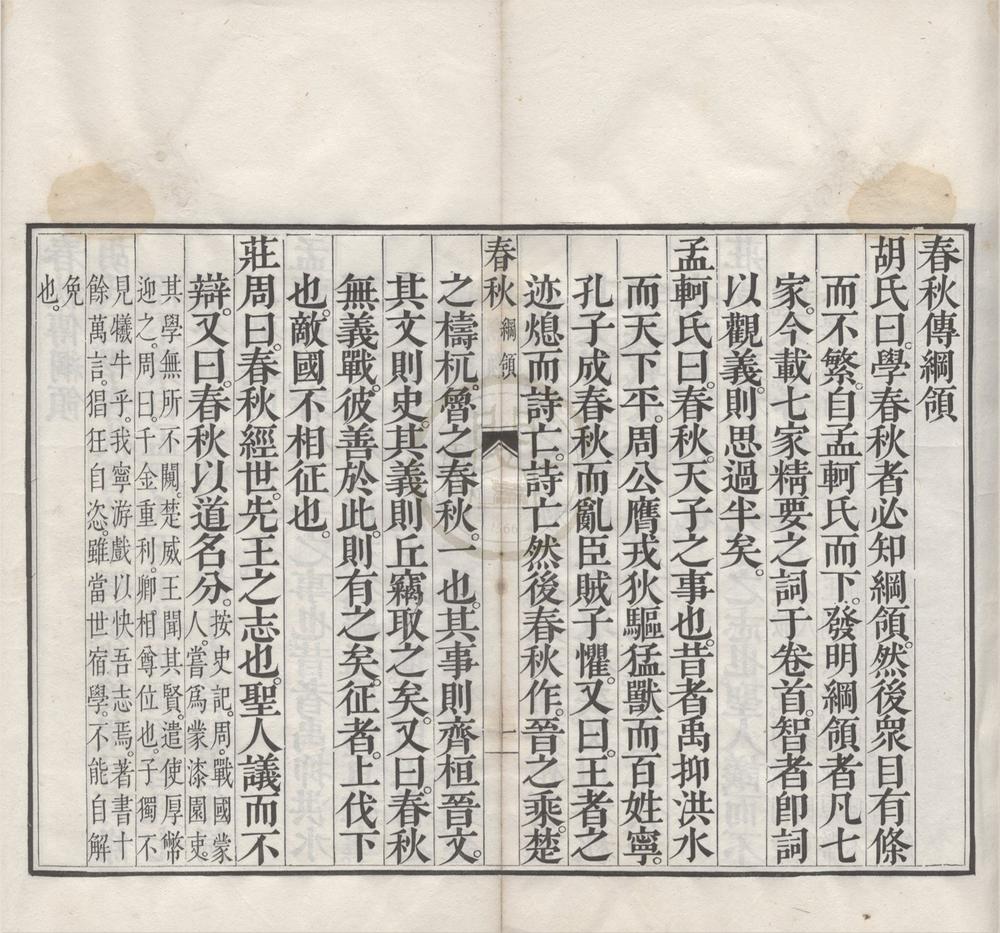 春秋傳綱領
胡氏曰。學春秋者必知綱領。然後衆目有條
而不繁。自孟軻氏而下。發明綱領者凡七
家。今載七家精要之詞于卷首。智者卽詞
以觀義。則思過半矣。
孟軻氏曰。春秋。天子之事也。昔者禹抑洪水
而天下平。周公膺戎狄驅猛獸而百姓寧。
孔子成春秋而亂臣賊子懼。又曰。王者之
迹熄而詩亡。詩亡然後春秋作。晉之乘。楚
春秋 綱領 一
之檮杌。魯之春秋。一也。其事則齊桓晉文。
其文則史。其義則丘竊取之矣。又曰。春秋
無義戰。彼善於此。則有之矣。征者。上伐下
也。敵國不相征也。
莊周曰。春秋經世。先王之志也。聖人議而不
辯。又曰。春秋以道名分。按史記。周。戰國蒙
人。嘗爲蒙漆園吏。
其學無所不闚。楚威王聞其賢。遣使厚幣
迎之。周曰。千金重利。卿相尊位也。子獨不
見犧牛乎。我寧游戲以快吾志焉。著書十
餘萬言。猖狂自恣。雖當世宿學。不能自解
免
也。